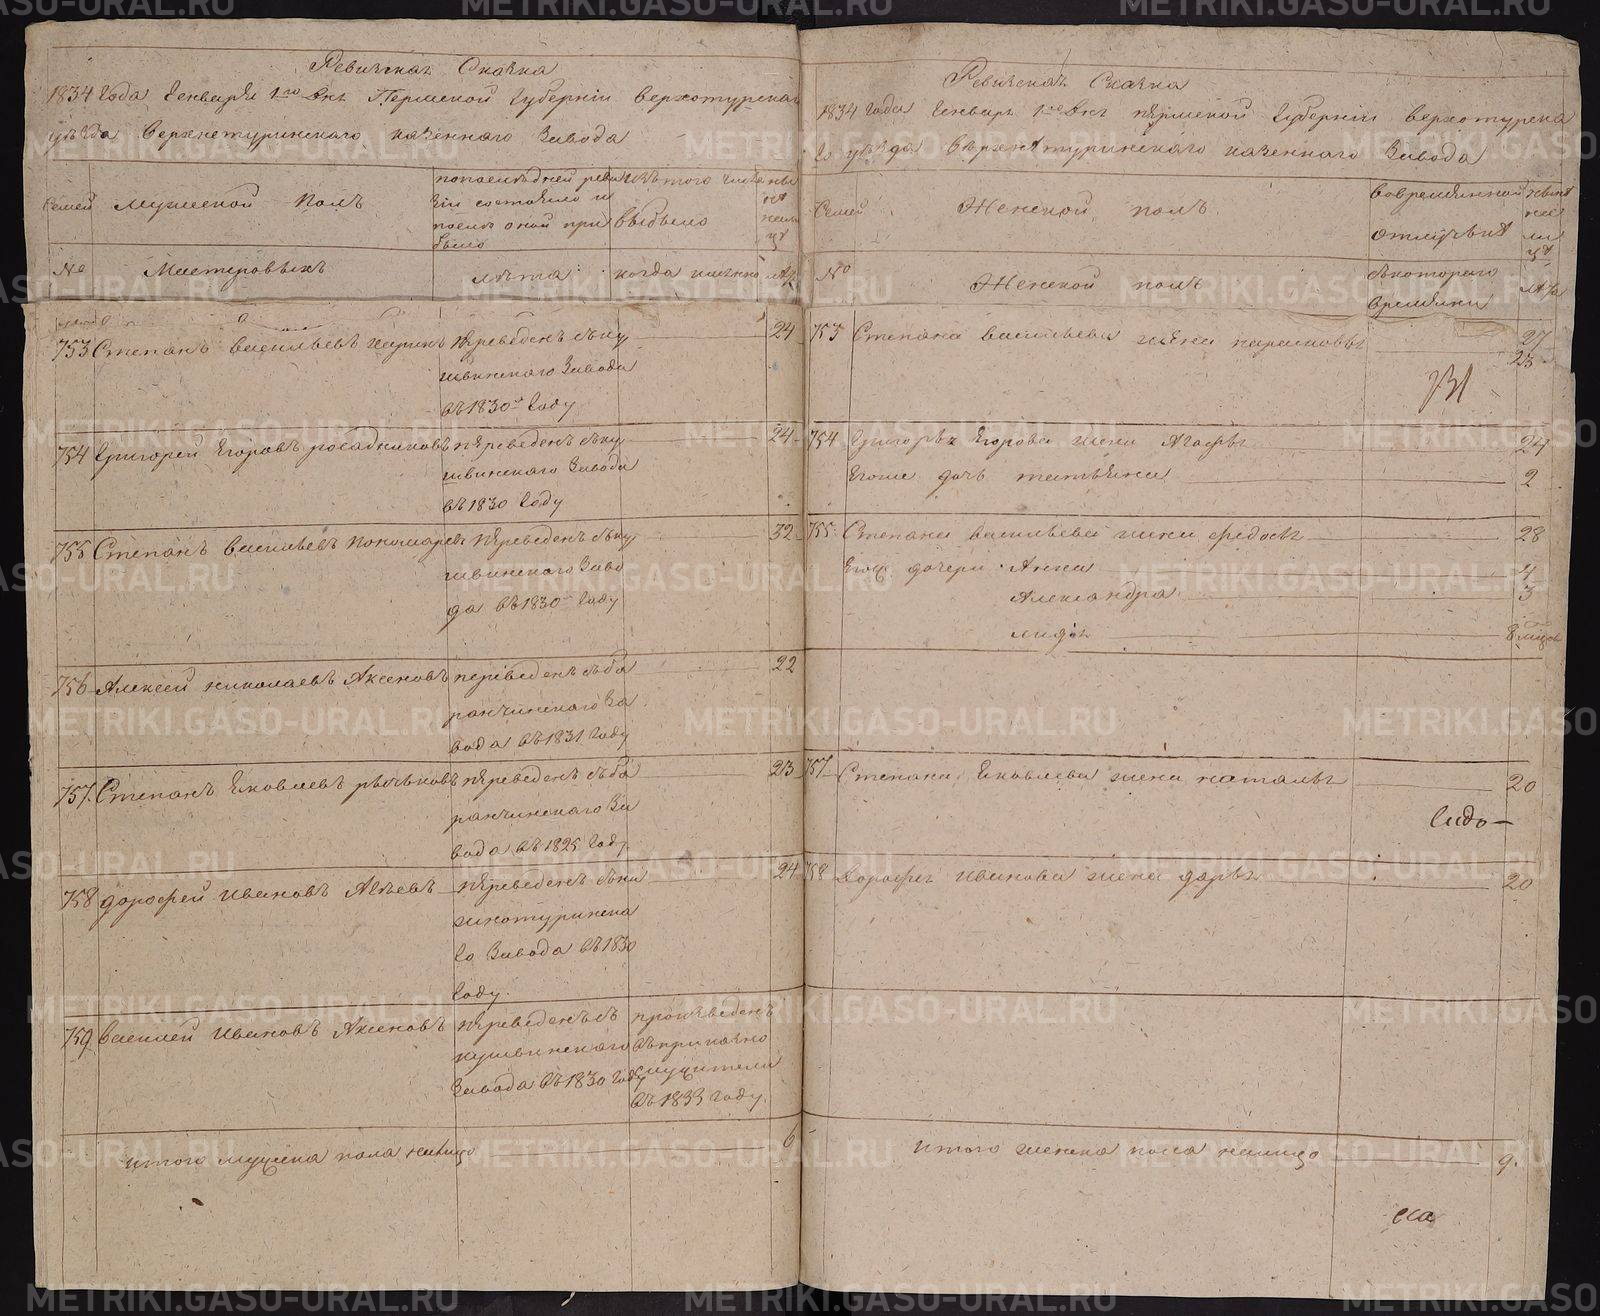 Ревизская Сказка
1834 года Генваря 1го дня Пермской Губернiи Верхотурска
уѣзда Верхнетуринскаго казеннаго Завода
Семей
Мужеской полъ
по последней реви
зiи состояло и
после оной при
было
изъ того числа
выбыло
ны
не
на
ли
це
№
Мастеровыхъ
лѣта
когда именно
лѣта
753 Степанъ Васильевъ переведенъ съ ку 24
швинскаго Завода
въ 1830м году
754 Григорей Егоровъ посадниковъ переведенъ съ ку 24
швинскаго Завода
въ 1830 году
755 Степанъ Васильевъ Пономаревъ переведенъ съ ку 32
швинскаго Заво
да въ 1830 году
756 Алексей Николаевъ Аксеновъ переведенъ съ ба 22
ранчинскаго За
вода въ 1831 году
757 Степанъ Яковлевъ переведенъ съ ба 23
ранчинскаго За
вода въ 1825 году
758 дорофей Ивановъ Авѣевъ переведенъ съ ни 24
жнотуринска
го Завода въ 1830
году
759 Василей Ивановъ Аксеновъ переведенъ съ
кушвинскаго
Завода въ 1830 году
произведенъ
въ приказно
служители
въ 1833 году
итого мужска пола налицо 6
Ревизская Сказка
1834 года Генваря 1го дня пермской Губернiи Верхотурска
го уѣзда Верхнетуринскаго казеннаго Завода
Семей
Женской полъ
Во временной
отлучке
ныне
на
ли
це
№
Женской полъ
съ котораго
времени
лѣта
753 Степана Васильева жена парасковья 27
23
754 Григорья Егорова жена Агафья 24
Егоже дочь татьяна 2
755 Степана Васильева жена федосья 28
Его дочери Анна 4
Александра 3
лидiя 8 месяц
757 Степана Яковлева жена наталья 20
Гидо
758 Дорофея Иванова жена дарья 20
итого женска пола налицо 9.
ска
METRIKI.GASO-URAL.RU